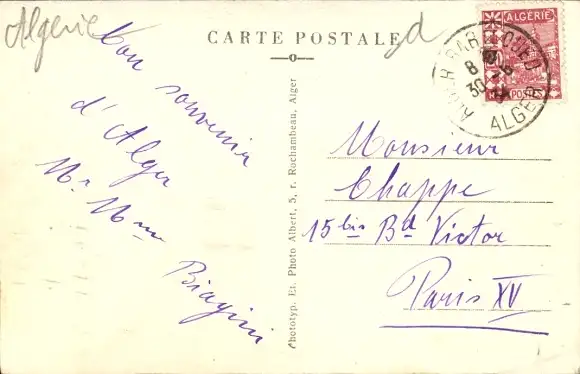 Algérie
CARTE POSTALE
Bon souvenir
d'Alger
Mr Mme
Biagini
Phototyp. Et. Photo Albert, 5, r. Rochambeau, Alger
ALGÉRIE
POSTES
ALGER BAB-EL-OUED
8
30
ALGER
Monsieur
Chappe
15 bis Bd Victor
Paris XV